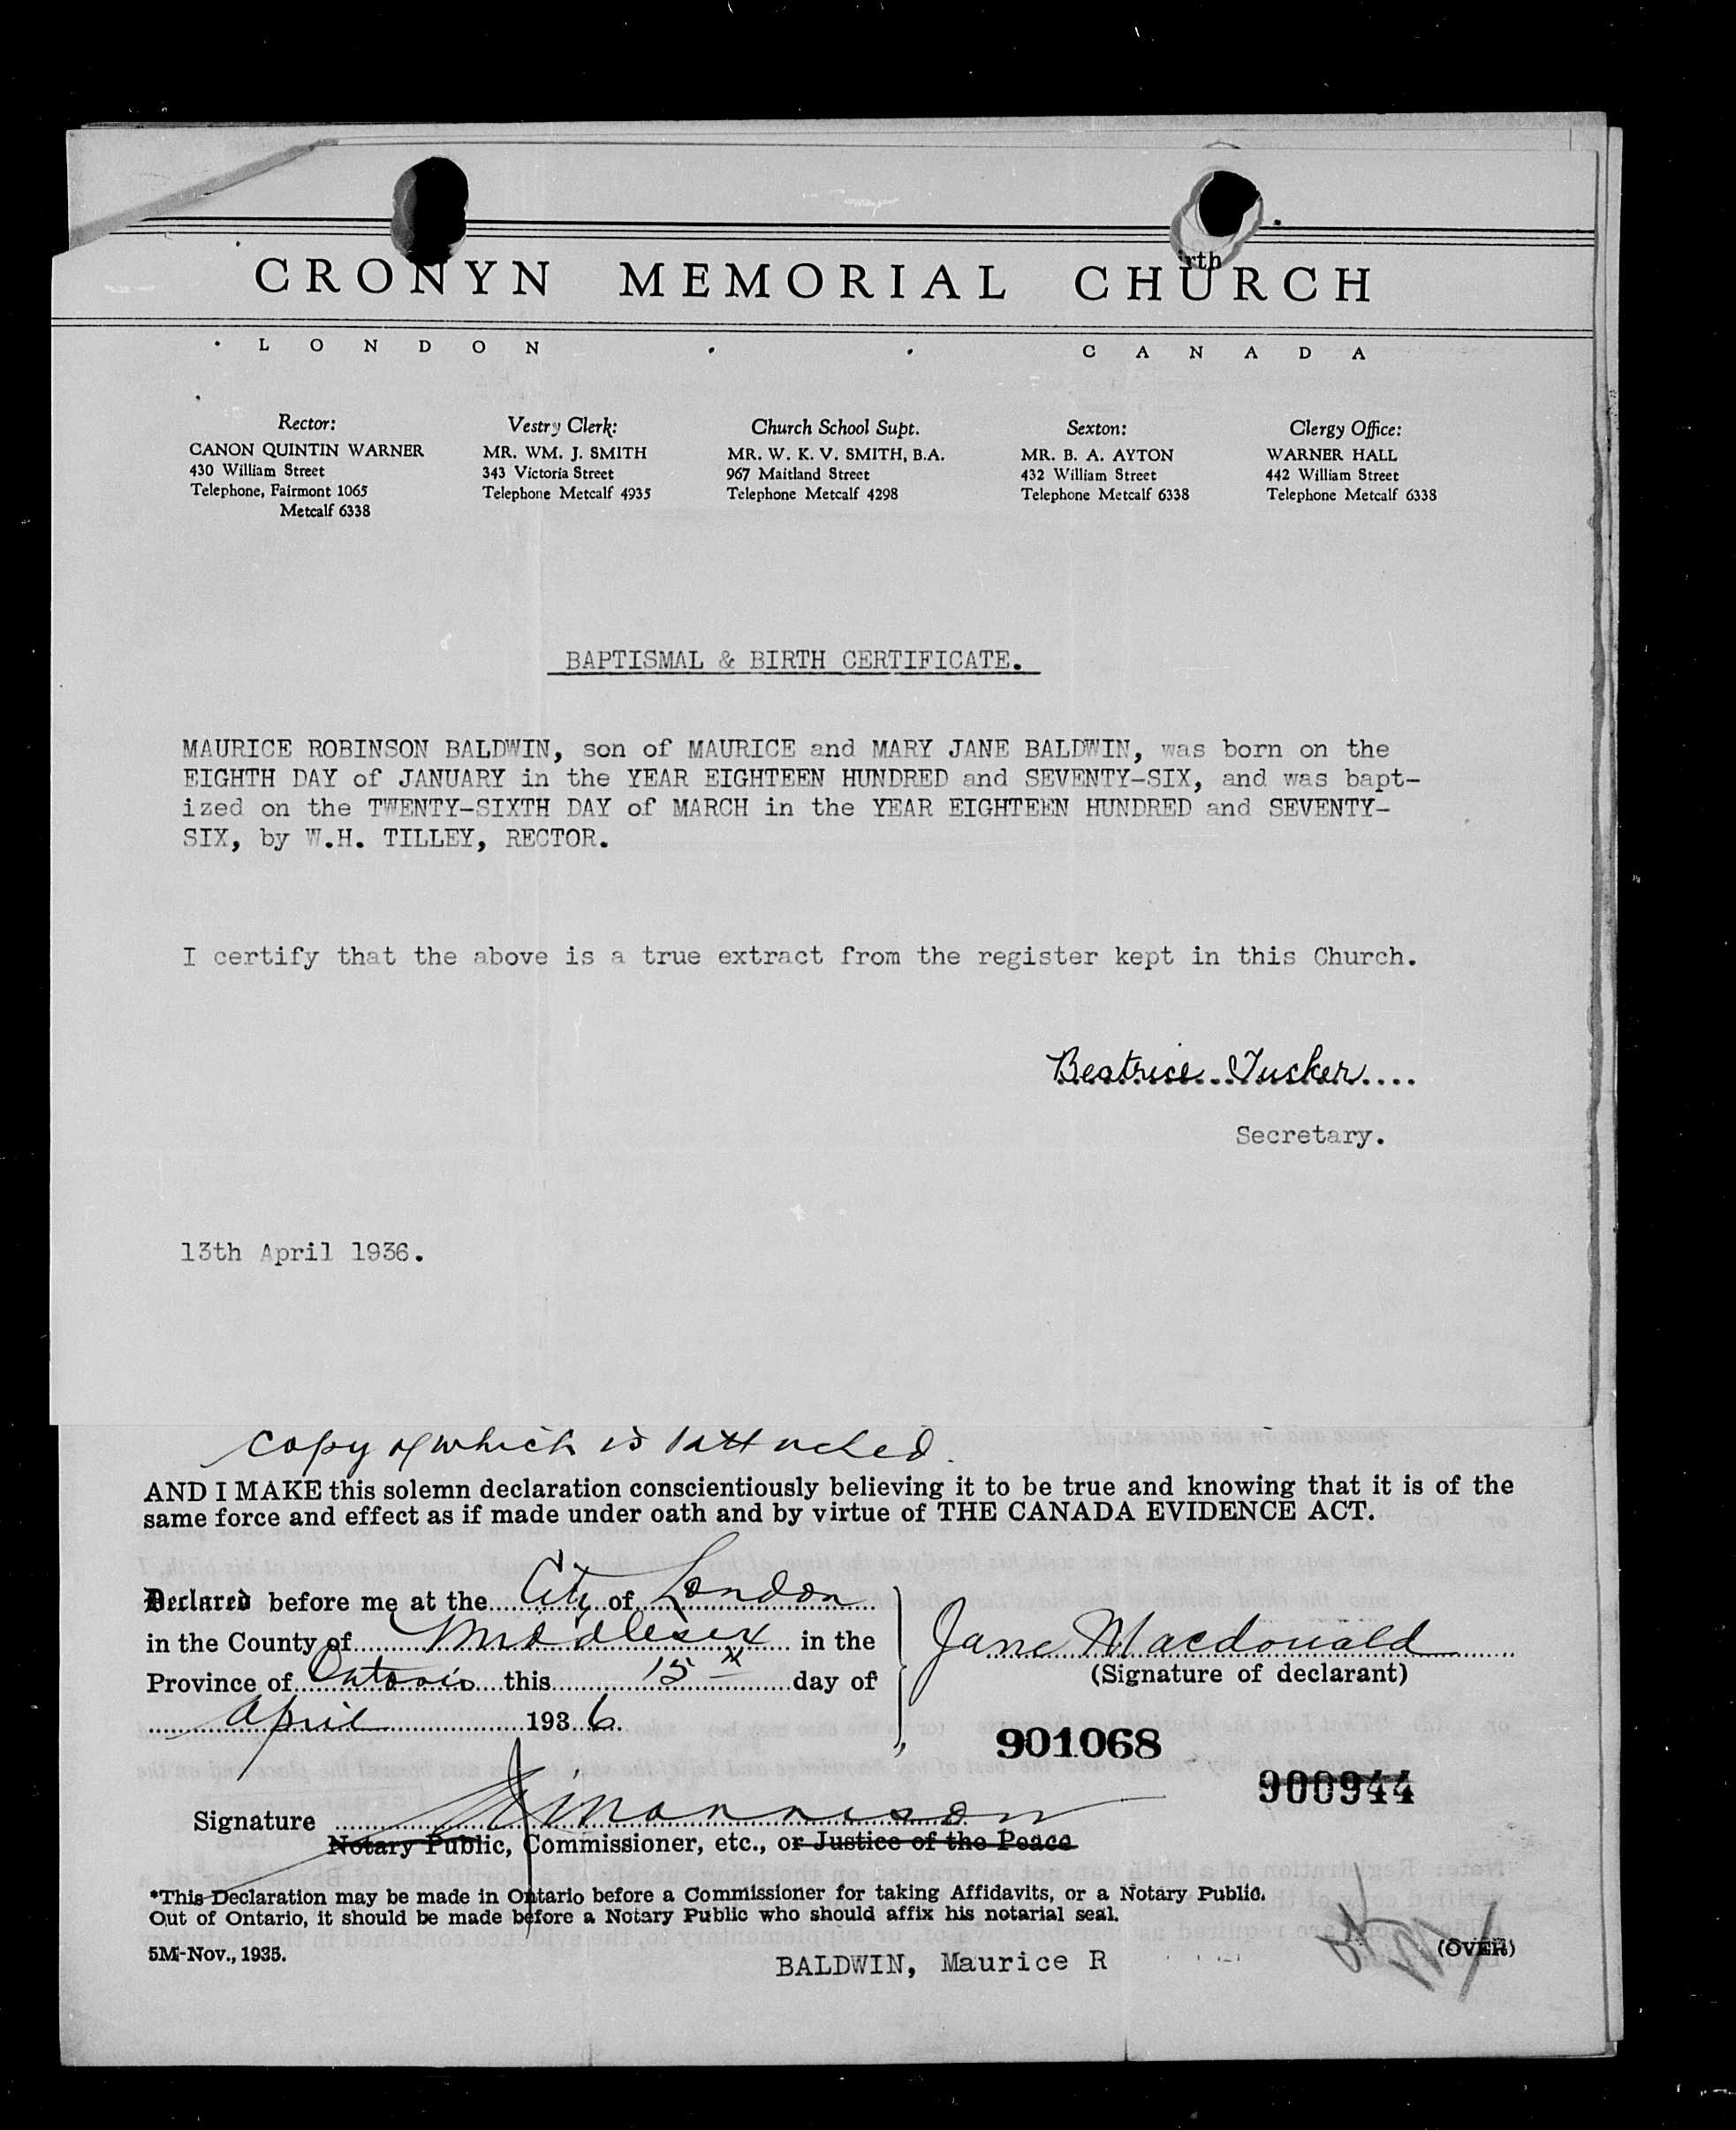 CRONYN MEMORIAL CHURCH
irth
LONDON CANADA
Rector:
CANON QUINTIN WARNER
430 William Street
Telephone, Fairmont 1065
Metcalf 6338
Vestry Clerk:
MR. WM. J. SMITH
343 Victoria Street
Telephone Metcalf 4935
Church School Supt.
MR. W. K. V. SMITH, B.A.
967 Maitland Street
Telephone Metcalf 4298
Sexton:
MR. B. A. AYTON
432 William Street
Telephone Metcalf 6338
Clergy Office:
WARNER HALL
442 William Street
Telephone Metcalf 6338
BAPTISMAL & BIRTH CERTIFICATE.
MAURICE ROBINSON BALDWIN, son of MAURICE and MARY JANE BALDWIN, was born on the
EIGHTH DAY of JANUARY in the YEAR EIGHTEEN HUNDRED and SEVENTY-SIX, and was bapt-
ized on the TWENTY-SIXTH DAY of MARCH in the YEAR EIGHTEEN HUNDRED and SEVENTY-
SIX, by W.H. TILLEY, RECTOR.
I certify that the above is a true extract from the register kept in this Church.
Beatrice Tucker
Secretary.
13th April 1936.
copy of which is attached.
AND I MAKE this solemn declaration conscientiously believing it to be true and knowing that it is of the
same force and effect as if made under oath and by virtue of THE CANADA EVIDENCE ACT.
Declared before me at the City of London
in the County of Middlesex in the
Province of Ontario this 15th day of
April 1936.
Jane Macdonald
(Signature of declarant)
901068
900944
Signature
Notary Public, Commissioner, etc., or Justice of the Peace
*This Declaration may be made in Ontario before a Commissioner for taking Affidavits, or a Notary Public.
Out of Ontario, it should be made before a Notary Public who should affix his notarial seal.
5M-Nov., 1935.
BALDWIN, Maurice R
(OVER)